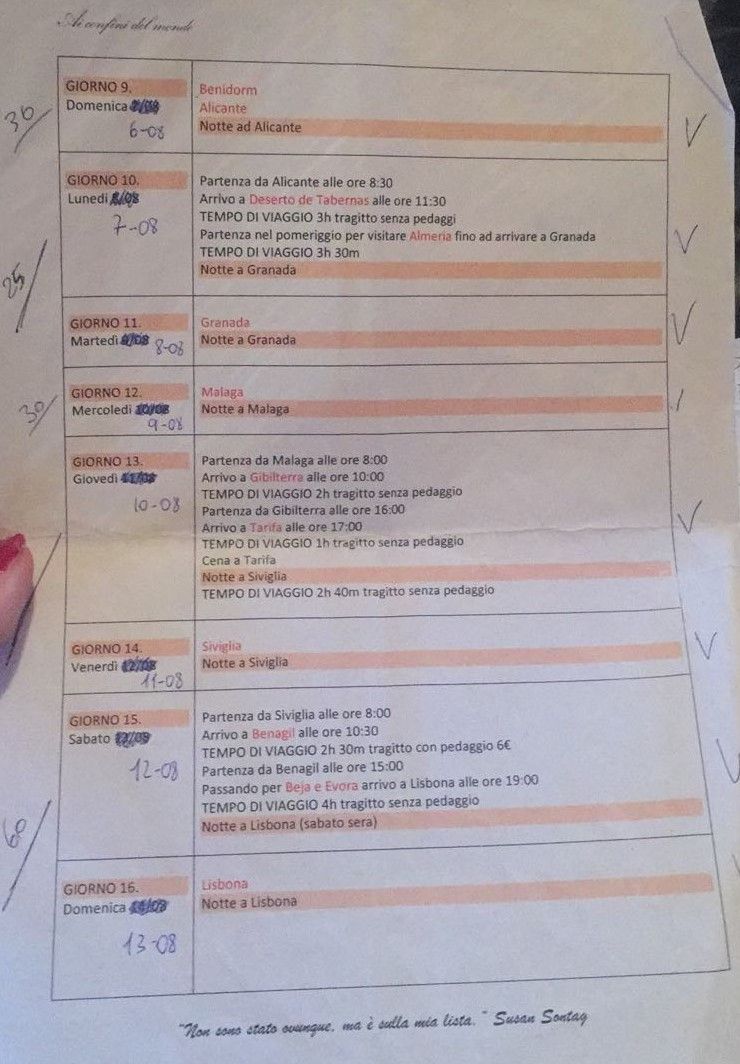 Ai confini del mondo
GIORNO 9.
Domenica
6-08
Benidorm
Alicante
Notte ad Alicante
30
GIORNO 10.
Lunedì
7-08
Partenza da Alicante alle ore 8:30
Arrivo a Deserto de Tabernas alle ore 11:30
TEMPO DI VIAGGIO 3h tragitto senza pedaggi
Partenza nel pomeriggio per visitare Almeria fino ad arrivare a Granada
TEMPO DI VIAGGIO 3h 30m
Notte a Granada
25
GIORNO 11.
Martedì
8-08
Granada
Notte a Granada
GIORNO 12.
Mercoledì
9-08
Malaga
Notte a Malaga
30
GIORNO 13.
Giovedì
10-08
Partenza da Malaga alle ore 8:00
Arrivo a Gibilterra alle ore 10:00
TEMPO DI VIAGGIO 2h tragitto senza pedaggio
Partenza da Gibilterra alle ore 16:00
Arrivo a Tarifa alle ore 17:00
TEMPO DI VIAGGIO 1h tragitto senza pedaggio
Cena a Tarifa
Notte a Siviglia
TEMPO DI VIAGGIO 2h 40m tragitto senza pedaggio
GIORNO 14.
Venerdì
11-08
Siviglia
Notte a Siviglia
GIORNO 15.
Sabato
12-08
Partenza da Siviglia alle ore 8:00
Arrivo a Benagil alle ore 10:30
TEMPO DI VIAGGIO 2h 30m tragitto con pedaggio 6€
Partenza da Benagil alle ore 15:00
Passando per Beja e Evora arrivo a Lisbona alle ore 19:00
TEMPO DI VIAGGIO 4h tragitto senza pedaggio
Notte a Lisbona (sabato sera)
60
GIORNO 16.
Domenica
13-08
Lisbona
Notte a Lisbona
"Non sono stato ovunque, ma è sulla mia lista." Susan Sontag